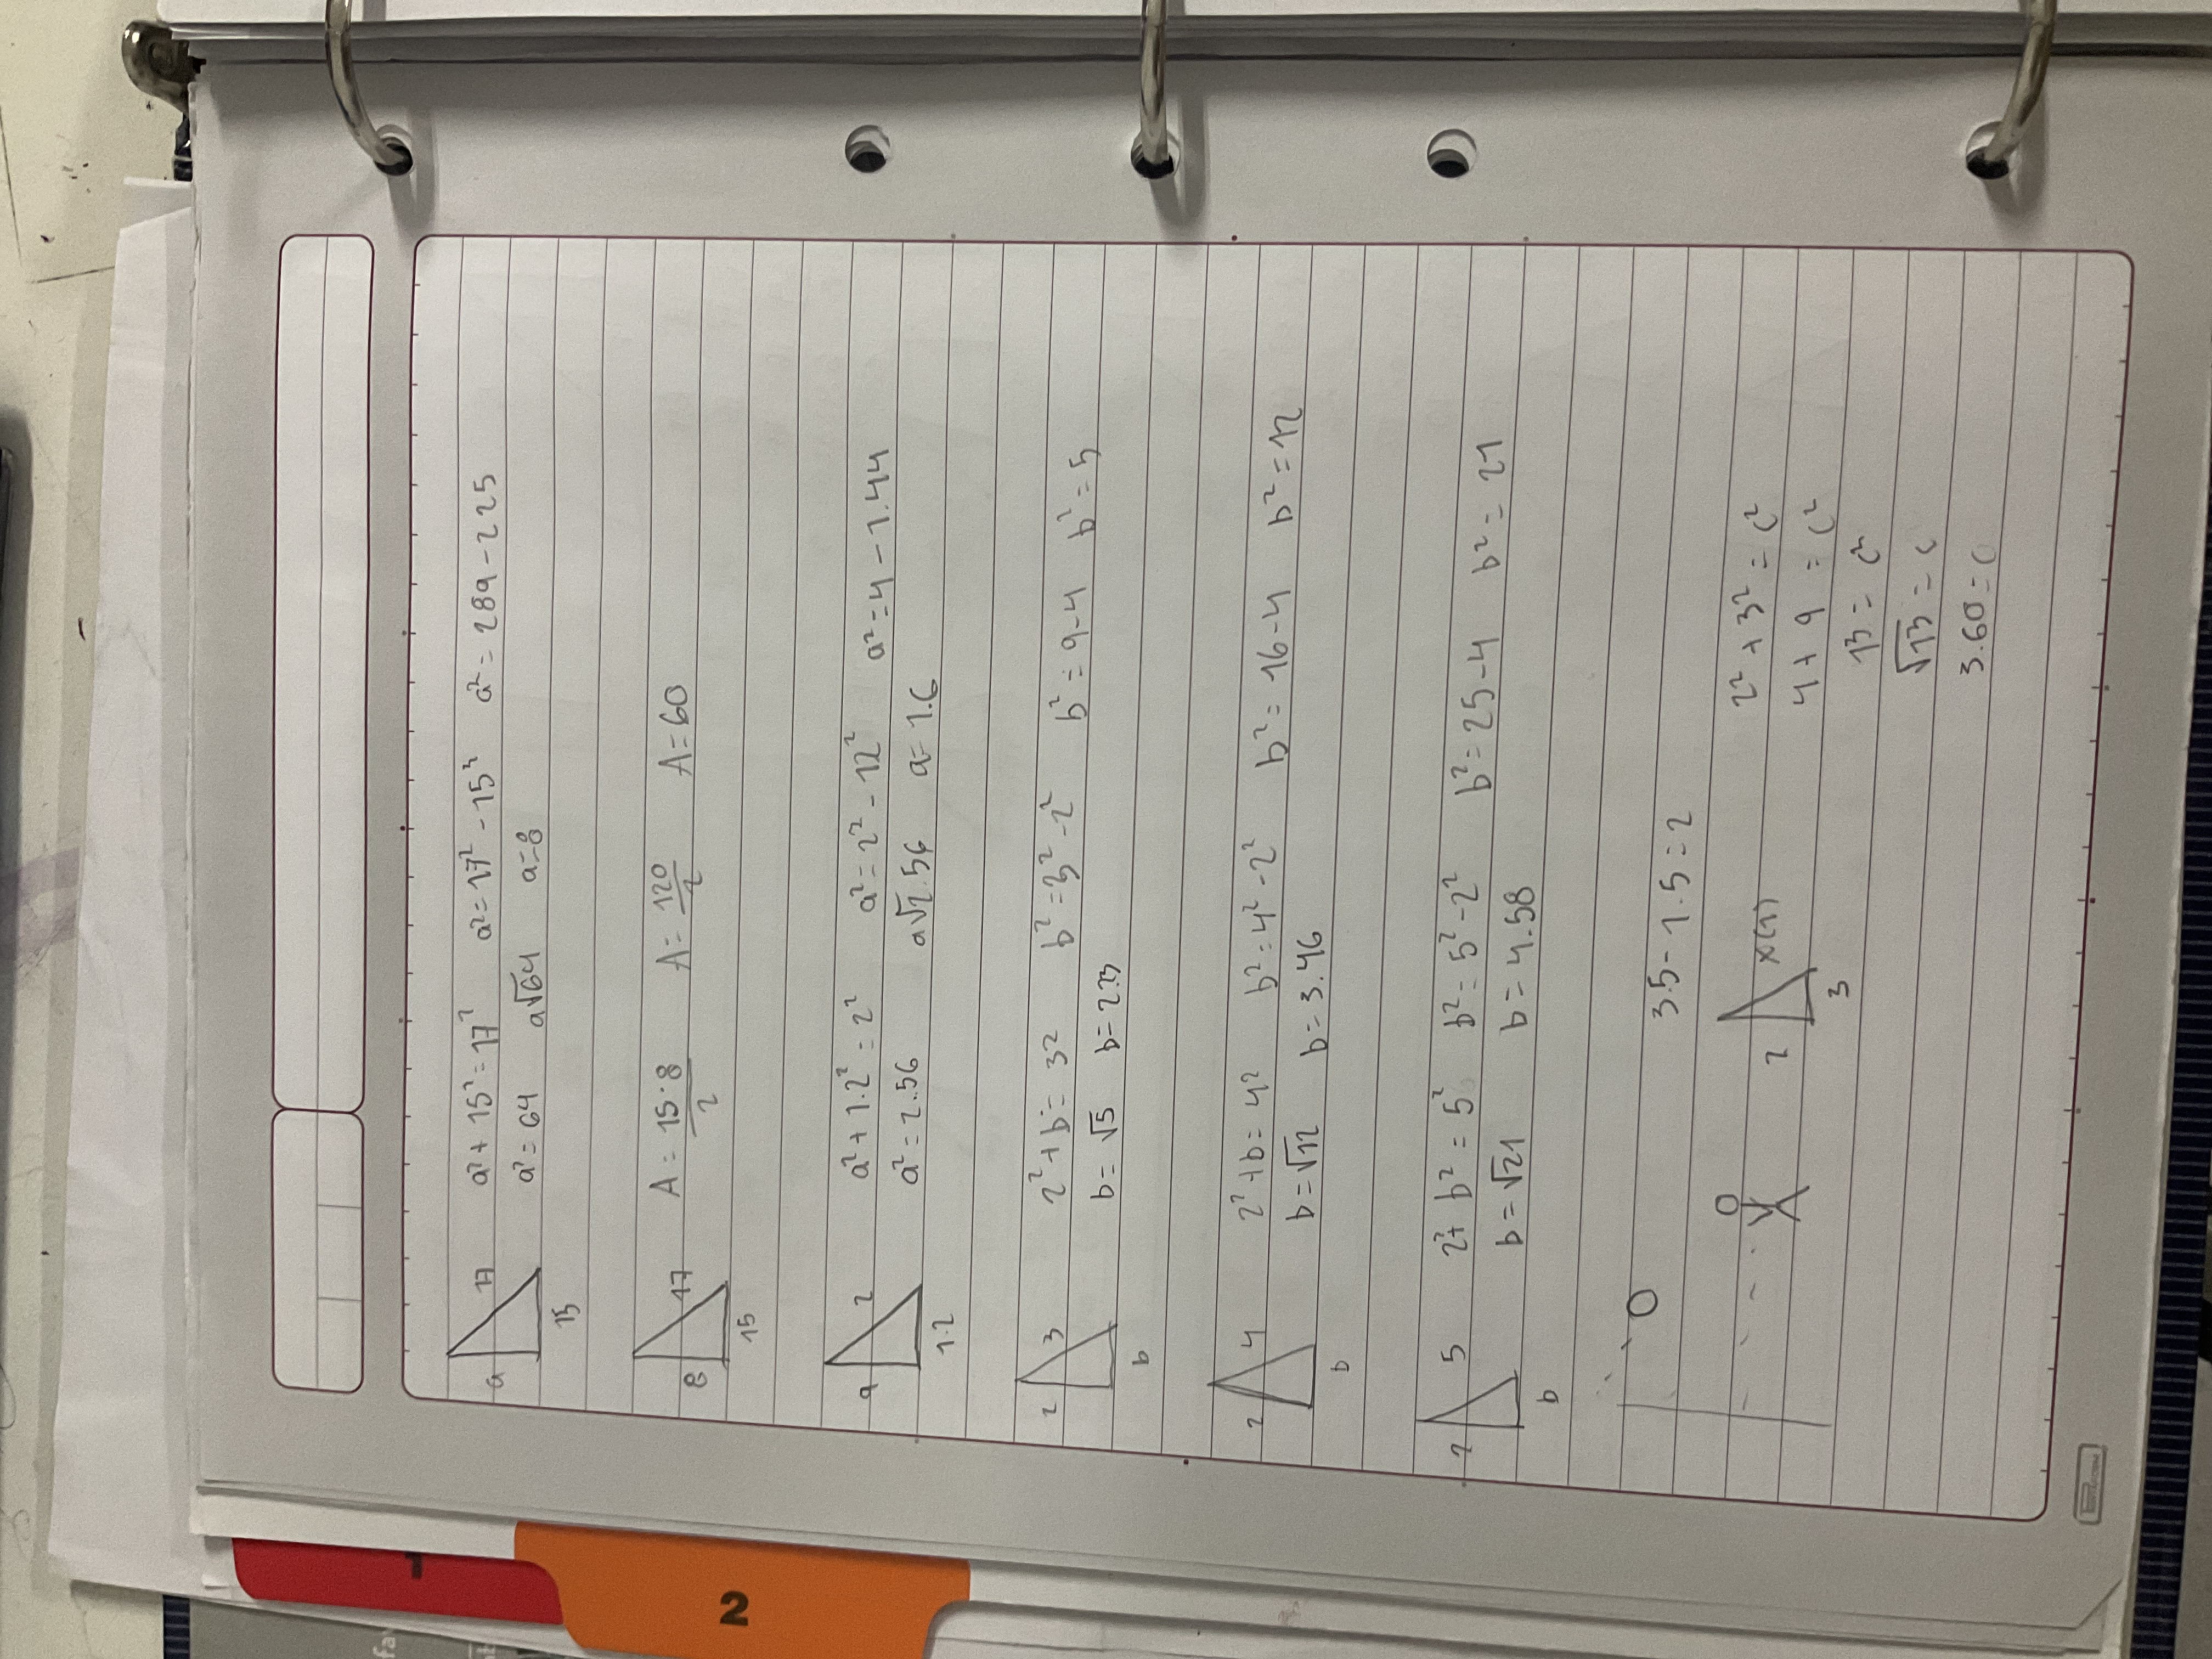 a 17 a² + 15² = 17² a² = 17² - 15² a² = 289 - 225
15 a² = 64 a√64 a=8
8 17 A = 15·8/2 A = 120/2 A = 60
15
a 2 a² + 1.2² = 2² a² = 2² - 12² a² = 4 - 1.44
1.2 a² = 2.56 a√2.56 a = 1.6
2 3 2² + b² = 32 b² = 3² - 2² b² = 9 - 4 b² = 5
b b = √5 b = 2.23
2 4 2² + b = 4² b² = 4² - 2² b² = 16 - 4 b² = 12
b b = √12 b = 3.46
2 5 2² + b² = 5² b² = 5² - 2² b² = 25 - 4 b² = 21
b b = √21 b = 4.58
3.5 - 1.5 = 2
2 3 2² + 3² = c²
4 + 9 = c²
13 = c²
√13 = c
3.60 = c
1
2